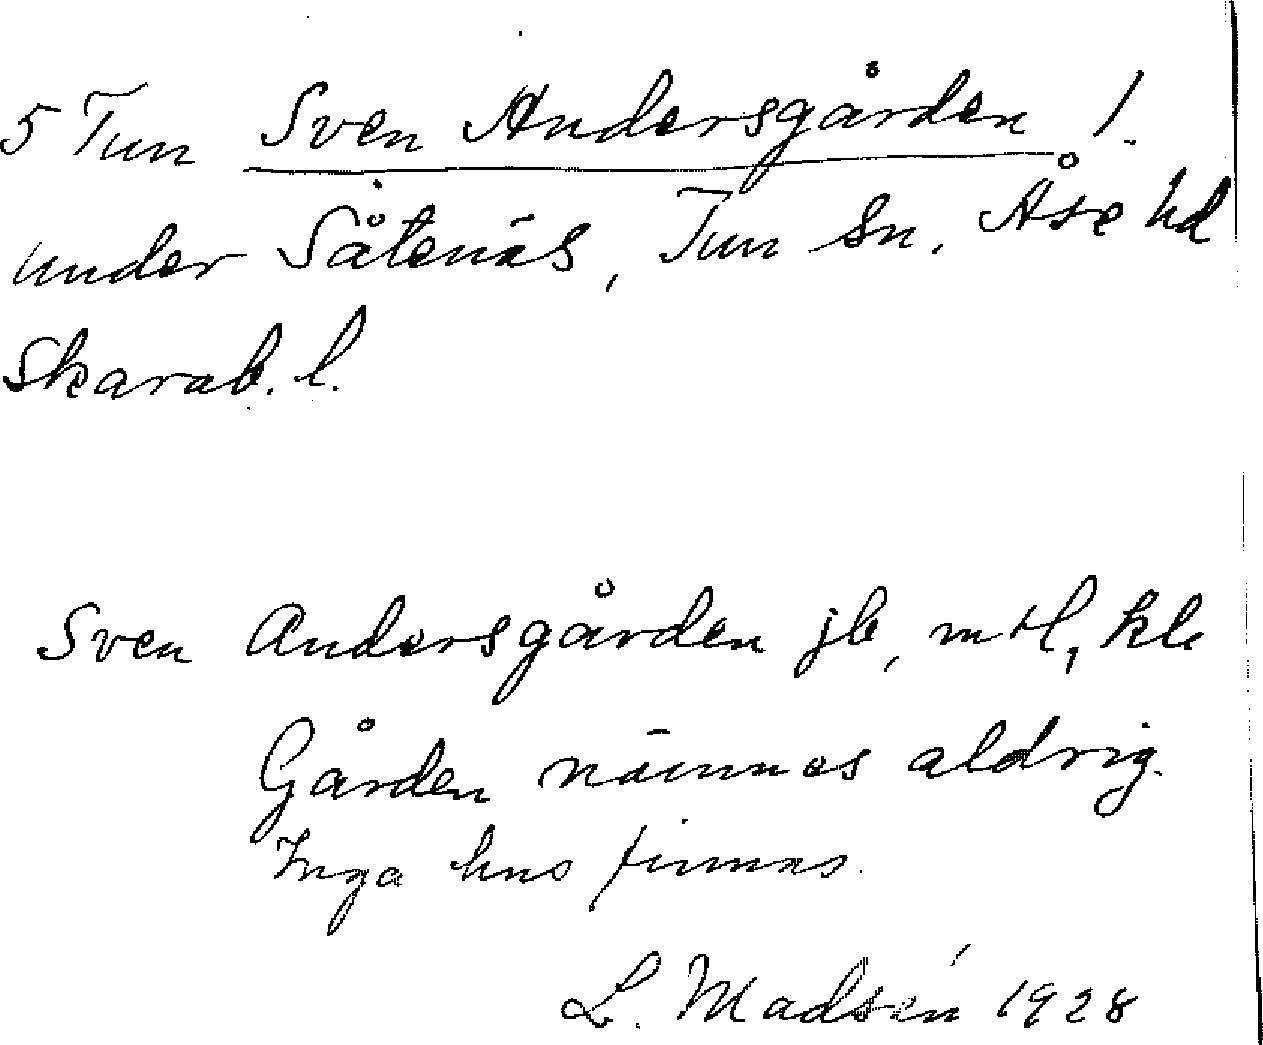 5 Tun Sven Andersgården 1.
under Såtenäs, Tun sn, Åse hd
Skarab. l.
Sven Andersgården jb, mtl, kb
Gården nämnes aldrig.
Inga hus finnas.
L. Madsén 1928